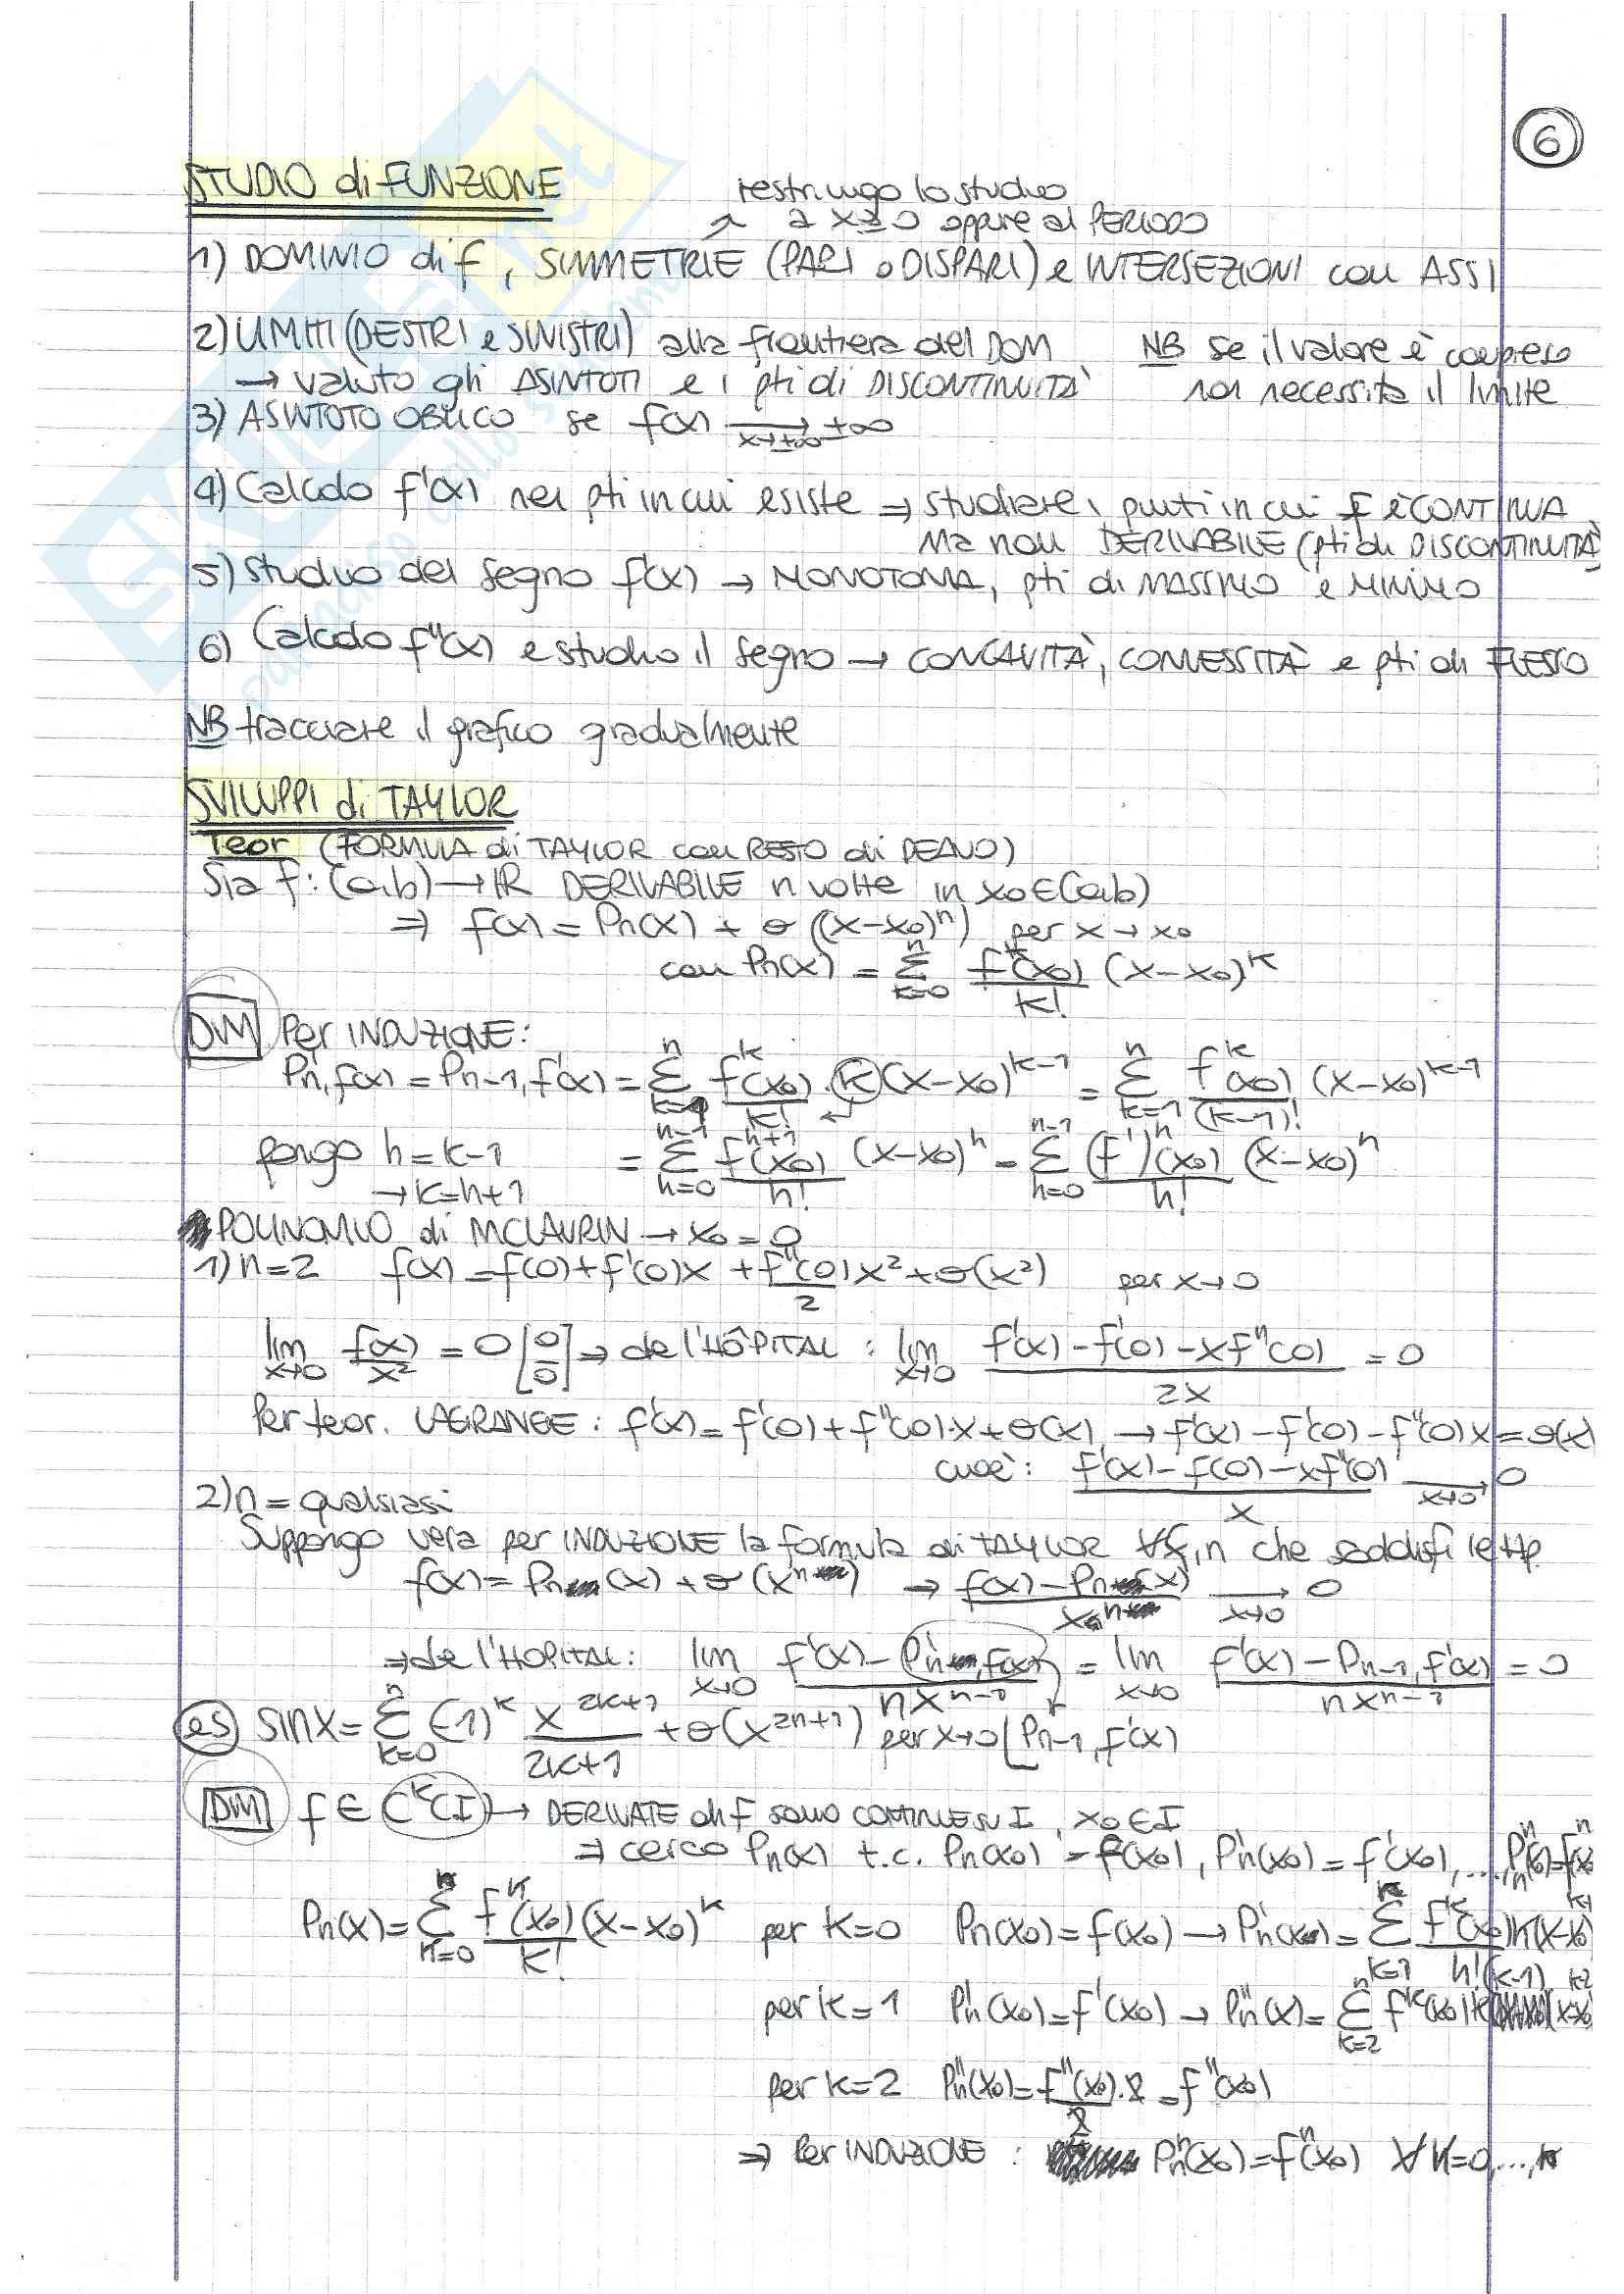 6
STUDIO di FUNZIONE
restringo lo studio
↗ a x≥0 oppure al PERIODO
1) DOMINIO di f, SIMMETRIE (PARI o DISPARI) e INTERSEZIONI con ASSI
2) LIMITI (DESTRI e SINISTRI) alla frontiera del DOM NB se il valore è compreso
→ valuto gli ASINTOTI e i pti di DISCONTINUITÀ non necessita il limite
3) ASINTOTO OBLICO se f(x) → ±∞ x→±∞
4) Calcolo f'(x) nei pti in cui esiste ⇒ studiare i punti in cui f è CONTINUA
ma non DERIVABILE (pti di DISCONTINUITÀ)
5) Studio del segno f'(x) → MONOTONIA, pti di MASSIMO e MINIMO
6) Calcolo f''(x) e studio il segno → CONCAVITÀ, CONVESSITÀ e pti di FLESSO
NB tracciare il grafico gradualmente
SVILUPPI di TAYLOR
Teor (FORMULA di TAYLOR con RESTO di PEANO)
Sia f: (a,b) → ℝ DERIVABILE n volte in x₀∈(a,b)
⇒ f(x) = Pn(x) + o((x-x₀)ⁿ) per x → x₀
con Pn(x) = Σ_{k=0}^{n} fᵏ(x₀)/k! (x-x₀)ᵏ
DIM Per INDUZIONE:
P'n,f(x) = Pn-1,f'(x) = Σ_{k=1}^{n} fᵏ(x₀)/k! · k (x-x₀)ᵏ⁻¹ = Σ_{k=1}^{n} fᵏ(x₀)/(k-1)! (x-x₀)ᵏ⁻¹
pongo h = k-1 = Σ_{h=0}^{n-1} fʰ⁺¹(x₀)/h! (x-x₀)ʰ = Σ_{h=0}^{n-1} (f')ʰ(x₀)/h! (x-x₀)ʰ
→ k = h+1
POLINOMIO di MCLAURIN → x₀ = 0
1) n=2 f(x) = f(0) + f'(0)x + f''(0)/2 x² + o(x²) per x→0
lim x→0 f(x)/x² = 0 [0/0] ⇒ de l'HÔPITAL : lim x→0 (f'(x) - f'(0) - xf''(0))/2x = 0
Per teor. LAGRANGE : f'(x) = f'(0) + f''(0)·x + o(x) → f'(x) - f'(0) - f''(0)x = o(x)
cioè: (f'(x) - f'(0) - xf''(0))/x → 0 x→0
2) n = qualsiasi
Suppongo vera per INDUZIONE la formula di TAYLOR ∀f,n che soddisfi le Hp.
f(x) = Pn(x) + o(xⁿ) → (f(x) - Pn(x))/xⁿ → 0 x→0
⇒ de l'HOPITAL: lim x→0 (f'(x) - P'n,f(x))/nxⁿ⁻¹ = lim x→0 (f'(x) - Pn-1,f'(x))/nxⁿ⁻¹ = 0
es sinx = Σ_{k=0}^{n} (-1)ᵏ x²ᵏ⁺¹/2k+1 + o(x²ⁿ⁺¹) per x→0 Pn-1,f'(x)
DIM f ∈ Cᵏ(I) → DERIVATE di f sono CONTINUE SU I, x₀∈I
⇒ cerco Pn(x) t.c. Pn(x₀) = f(x₀), P'n(x₀) = f'(x₀), ..., Pⁿn(x₀) = fⁿ(x₀)
Pn(x) = Σ_{k=0} fᵏ(x₀)/k! (x-x₀)ᵏ per k=0 Pn(x₀) = f(x₀) → P'n(x) = Σ_{k=1} fᵏ(x₀)k(x-x₀)ᵏ⁻¹
per k=1 P'n(x₀) = f'(x₀) → P''n(x) = Σ_{k=2}^{n} fᵏ(x₀)
per k=2 P''n(x₀) = f''(x₀)/2 · 2 = f''(x₀)
⇒ Per INDUZIONE : Pⁿn(x₀) = fⁿ(x₀) ∀